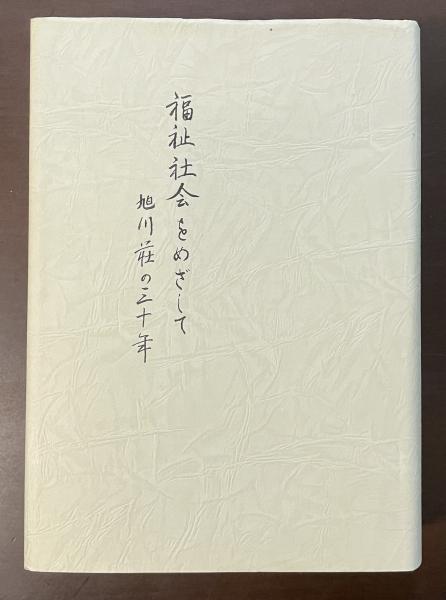 福祉社会をめざして
旭川荘の三十年